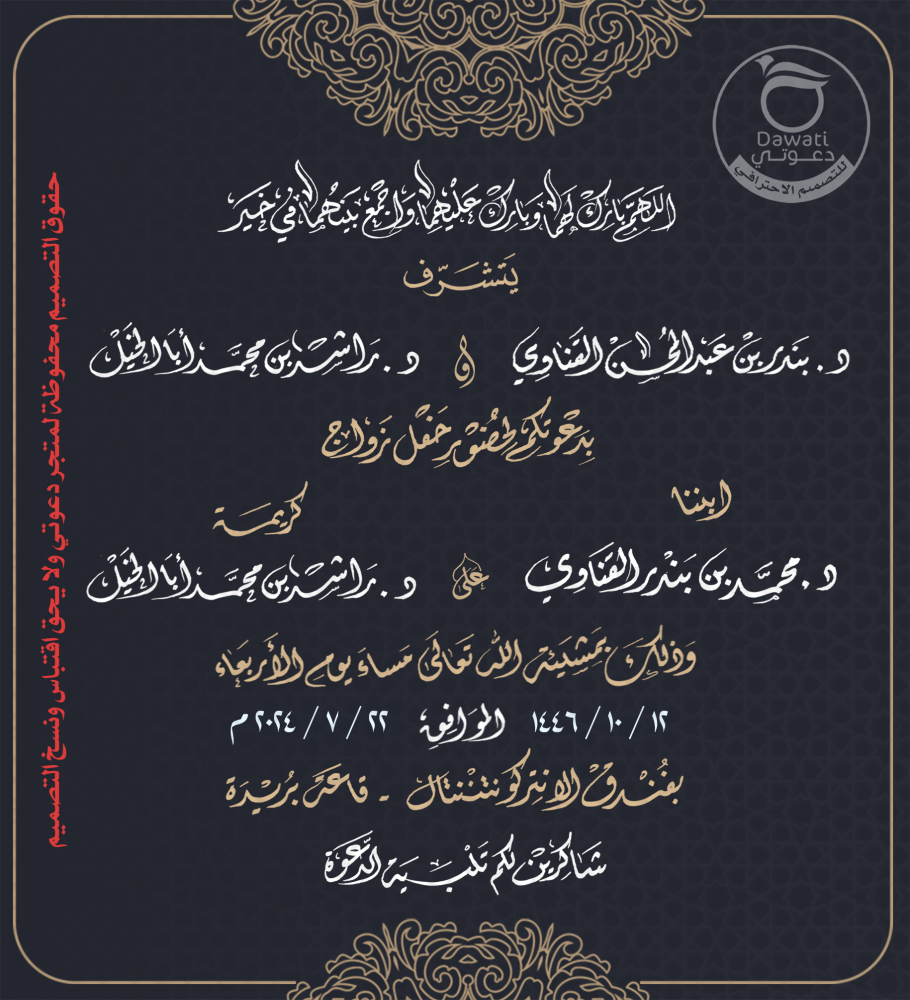 Dawati
دعوتي
للتصميم الاحترافي
اللهم بارك لهما وبارك عليهما واجمع بينهما في خير
يتشرف
د. بندر بن عبدالمحسن القناوي و د. راشد بن محمد أبا الخيل
بدعوتكم لحضور حفل زواج
ابننا كريمة
د. محمد بن بندر القناوي على د. راشد بن محمد أبا الخيل
وذلك بمشيئة الله تعالى مساء يوم الأربعاء
١٢ / ١٠ / ١٤٤٦ الموافق ٢٢ / ٧ / ٢٠٢٤ م
بفندق الانتركونتننتال - قاعة بريدة
شاكرين لكم تلبية الدعوة
حقوق التصميم محفوظة لمتجر دعوتي ولا يحق اقتباس ونسخ التصميم